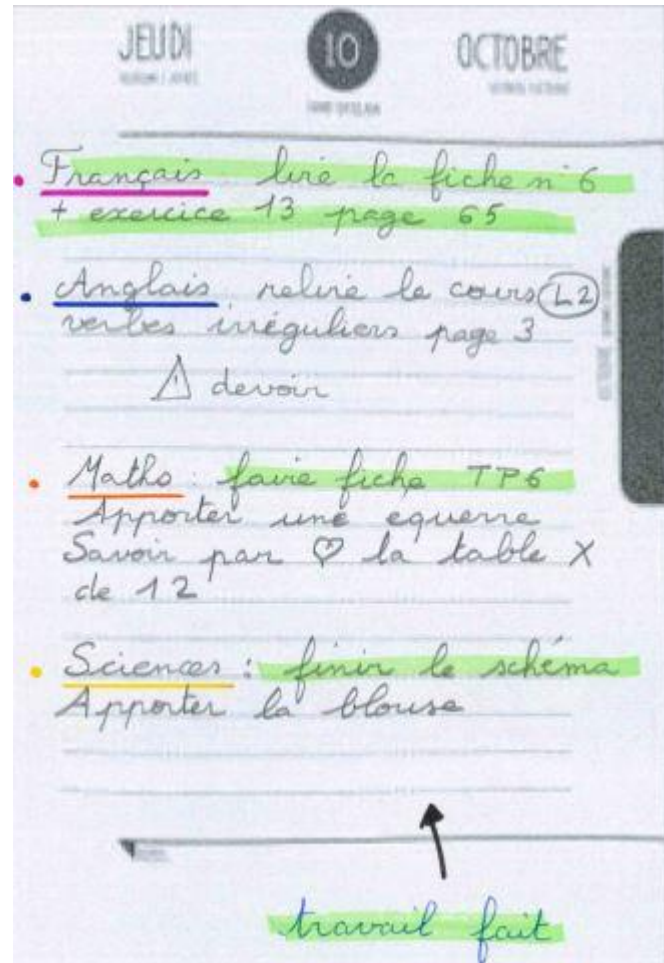 JEUDI 10 OCTOBRE
Français lire la fiche n°6
+ exercice 13 page 65
Anglais relire le cours L2
verbes irréguliers page 3
⚠ devoir
Maths : faire fiche TP6
Apporter une équerre
Savoir par ♡ la table X
de 12
Sciences : finir le schéma
Apporter la blouse
travail fait